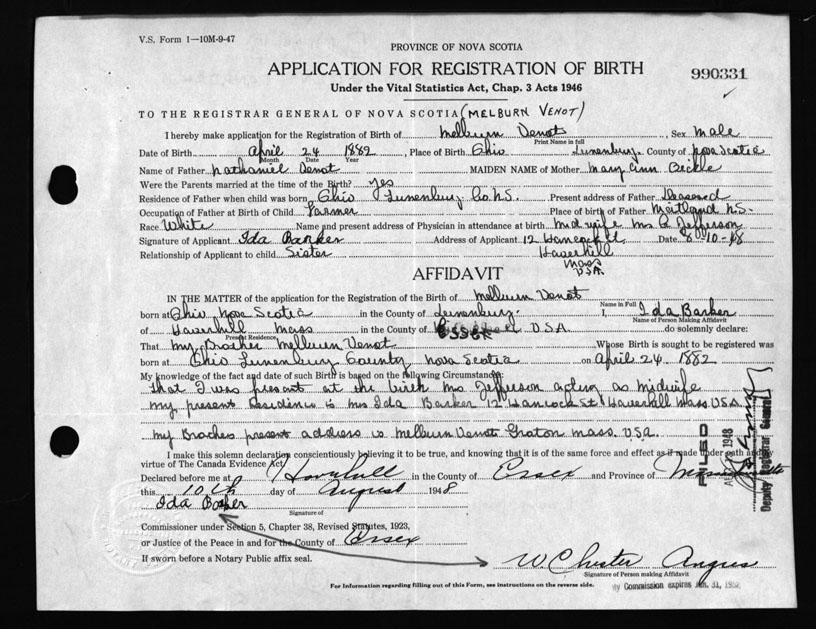 V.S. Form 1—10M-9-47
PROVINCE OF NOVA SCOTIA
APPLICATION FOR REGISTRATION OF BIRTH
990331
Under the Vital Statistics Act, Chap. 3 Acts 1946
TO THE REGISTRAR GENERAL OF NOVA SCOTIA (MELBURN VENOT)
I hereby make application for the Registration of Birth of Melburn Venot, Sex Male
Print Name in full
Date of Birth April 24 1882, Place of Birth Ohio Lunenburg County of Nova Scotia
Month Date Year
Name of Father Nathaniel Venot MAIDEN NAME of Mother Mary Ann
Were the Parents married at the time of the Birth? yes
Residence of Father when child was born Ohio Lunenburg Co. N.S. Present address of Father Deceased
Occupation of Father at Birth of Child Farmer Place of birth of Father Maitland N.S.
Race White Name and present address of Physician in attendance at birth Midwife Mrs Jefferson
Signature of Applicant Ida Barker Address of Applicant 12 Hancock St Date 8-10-48
Relationship of Applicant to child Sister Haverhill
Mass
USA.
AFFIDAVIT
IN THE MATTER of the application for the Registration of the Birth of Melburn Venot
Name in Full
born at Ohio Nova Scotia in the County of Lunenburg. I, Ida Barker
Name of Person Making Affidavit
of Haverhill Mass in the County of ESSEX U.S.A. do solemnly declare:
Present Residence,
That my Brother Melburn Venot Whose Birth is sought to be registered was
born at Ohio Lunenburg County Nova Scotia on April 24 1882
My knowledge of the fact and date of such Birth is based on the following Circumstances:
that I was present at the birth Mrs Jefferson acting as midwife
my present residence is Mrs Ida Barker 12 Hancock St. Haverhill Mass. USA.
my Brothers present address is Melburn Venot Graton Mass. USA.
I make this solemn declaration conscientiously believing it to be true, and knowing that it is of the same force and effect as if made under oath and by
virtue of The Canada Evidence Act.
Declared before me at Haverhill in the County of Essex and Province of Massachusetts
this 10th day of August 1948
Ida Barker
Signature of
Commissioner under Section 5, Chapter 38, Revised Statutes, 1923,
or Justice of the Peace in and for the County of Essex
If sworn before a Notary Public affix seal.
W Chester Angus
Signature of Person making Affidavit
For Information regarding filling out of this Form, see instructions on the reverse side.
My Commission expires
FILED
1948
Deputy Registrar General